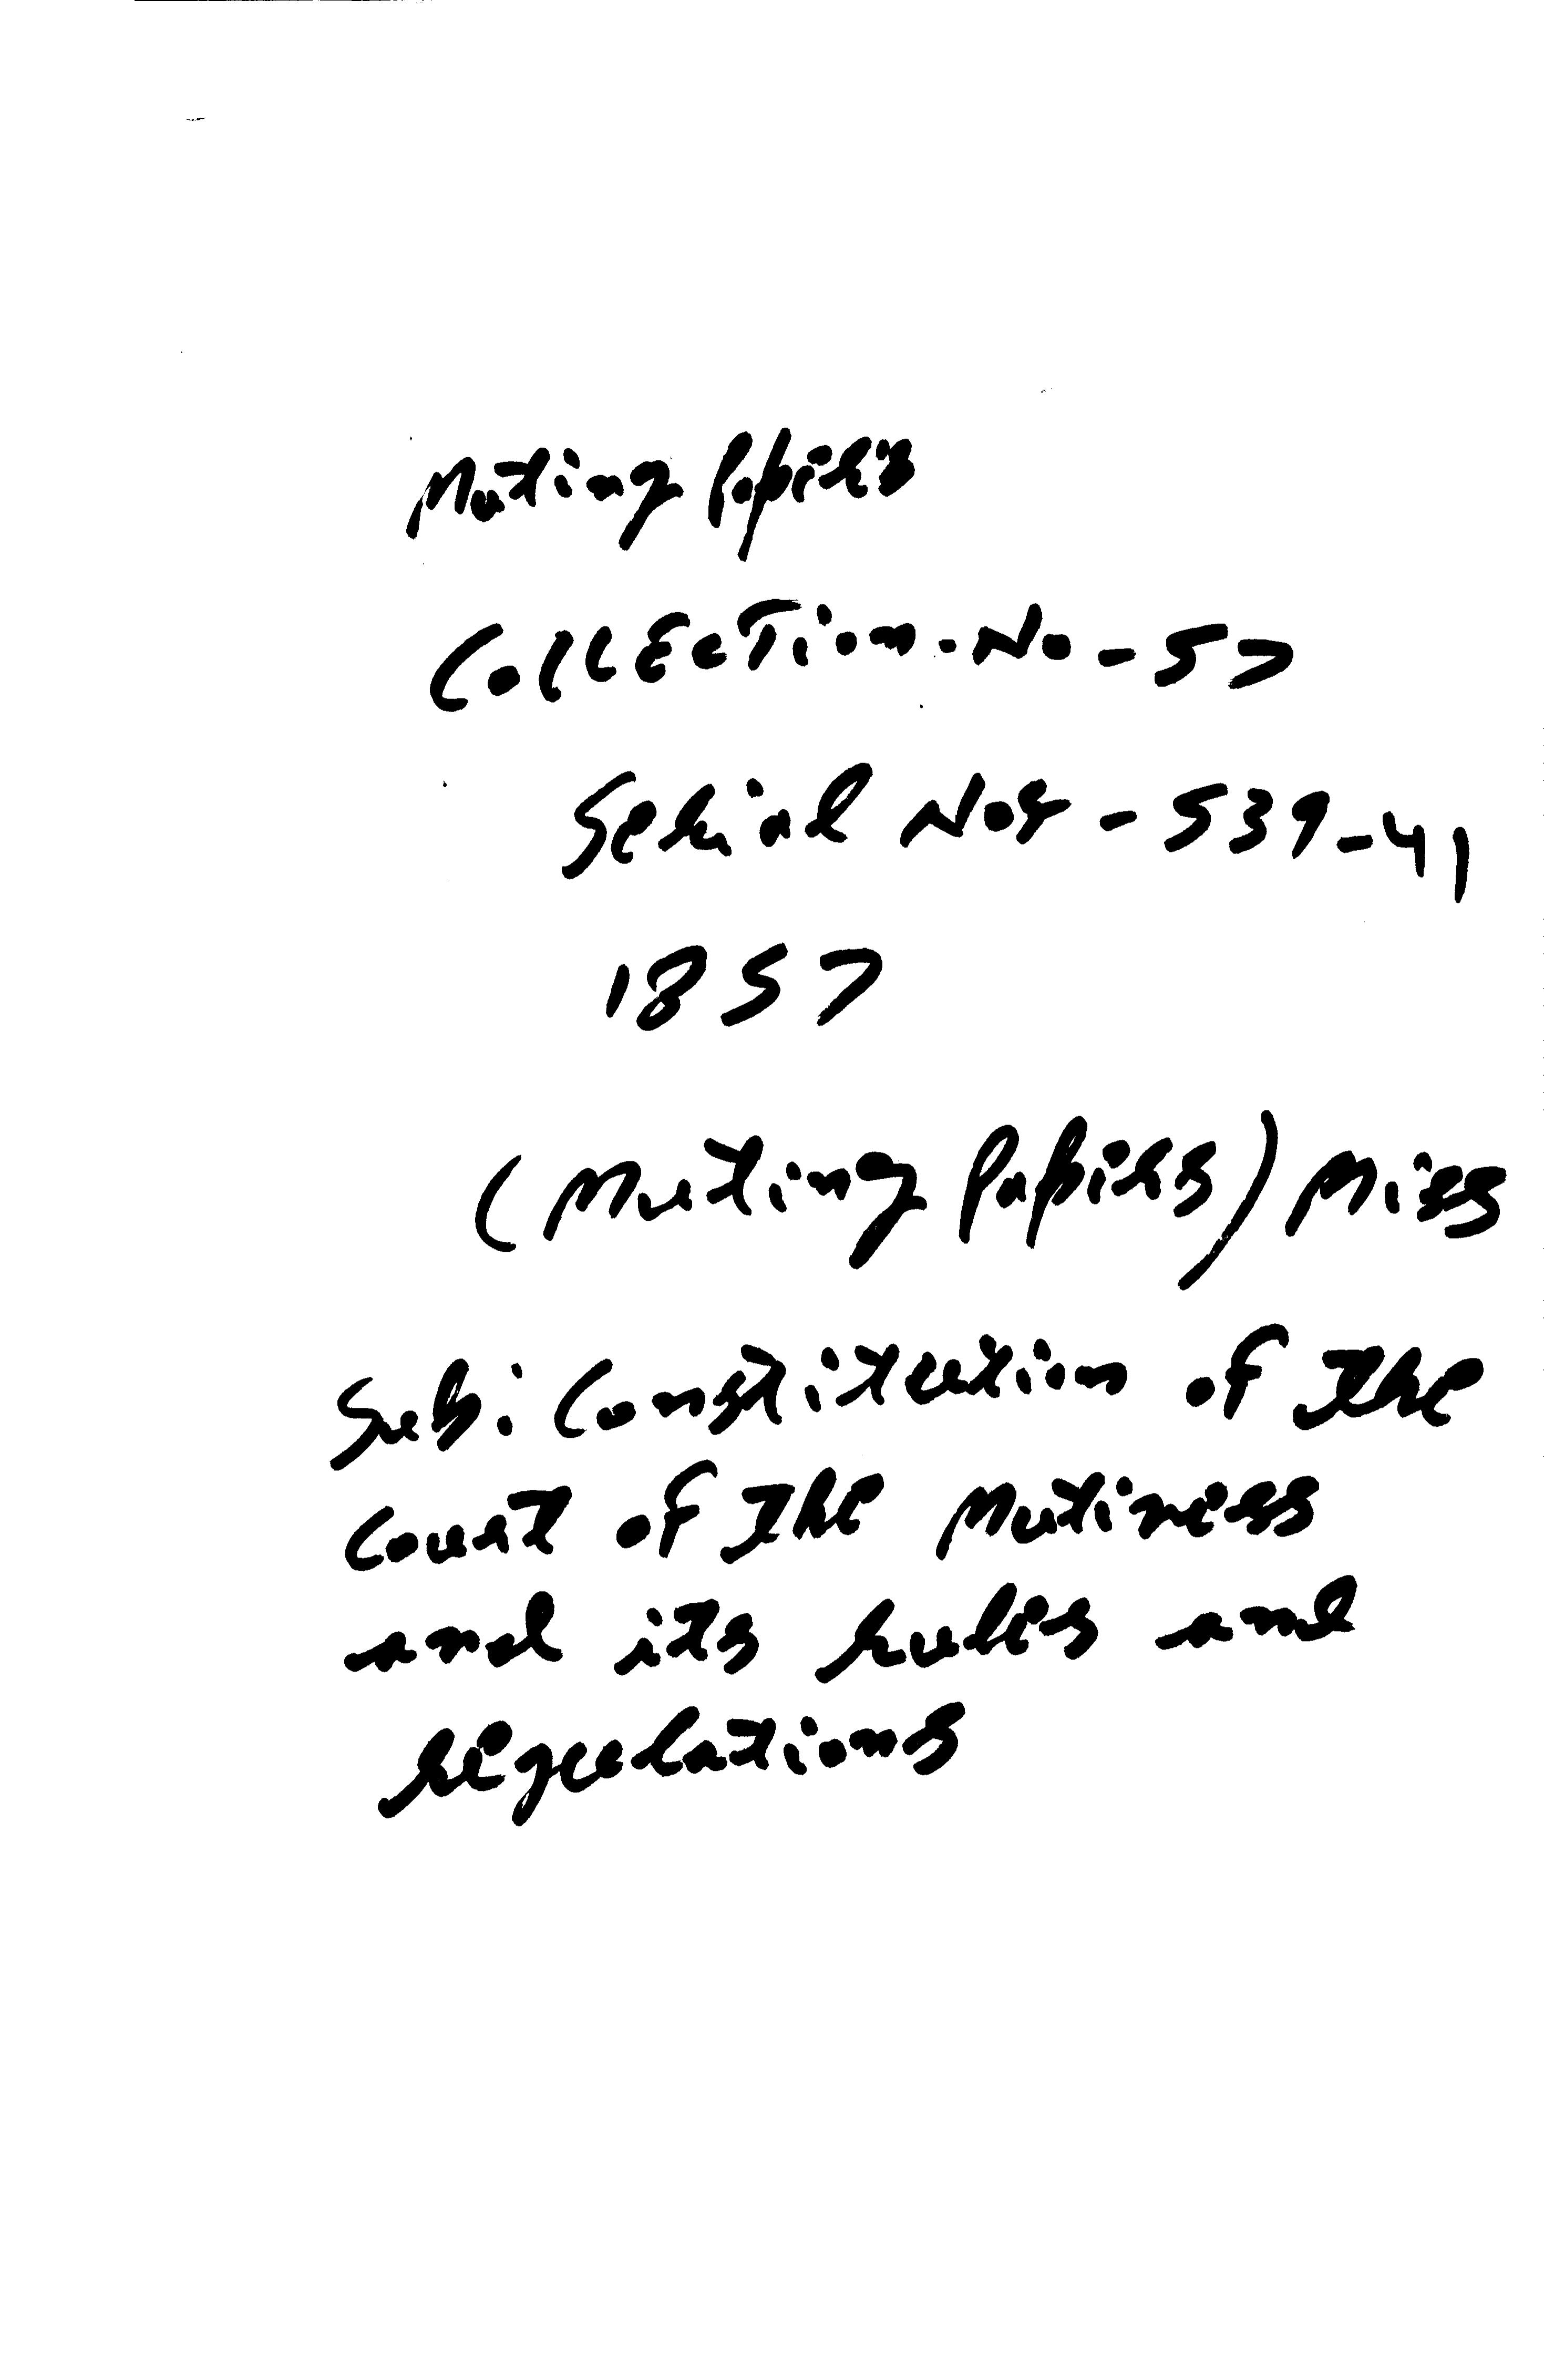 Mutiny Papers
Collection-No-57
Serial Nos-539-41
1857
(Mutiny Papers) Misc
Sub: Constitution of the
Court of the Mutineers
and its rules and
regulations